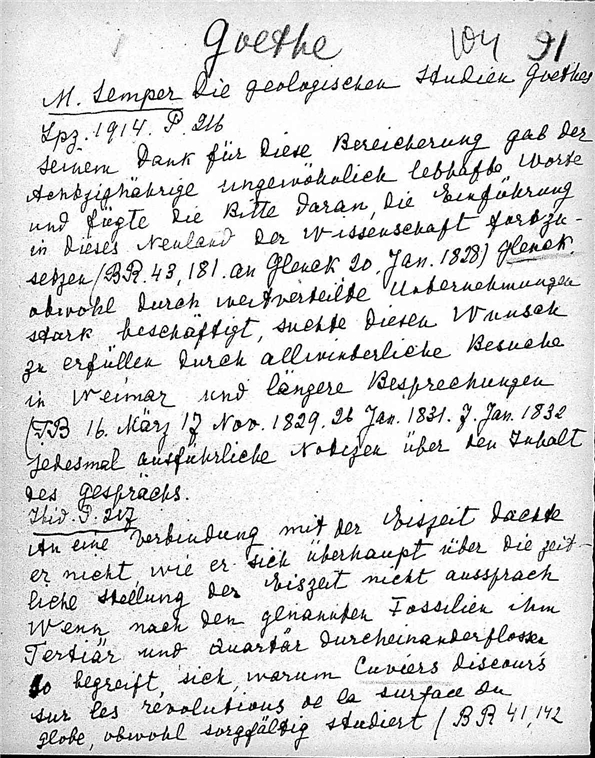 Goethe 104 91
M. Semper Die geologischen Studien Goethes
Lpz. 1914. P. 216
Seinem Dank für diese Bereicherung gab der
Achtzigjährige ungewöhnlich lebhafte Worte
und fügte die Bitte daran, die Einführung
in dieses Neuland der Wissenschaft fortzu-
setzen (BR. 43, 181. an Glenck 20. Jan. 1828) Glenck.
obwohl durch weitverteilte Unternehmungen
stark beschäftigt, suchte diesen Wunsch
zu erfüllen durch allwinterliche Besuche
in Weimar und längere Besprechungen
(TB 16. März 17 Nov. 1829. 26 Jan. 1831. 7. Jan. 1832
jedesmal ausführliche Notizen über den Inhalt
des Gesprächs.
Ibid. P. 217
An eine Verbindung mit der Eiszeit dachte
er nicht, wie er sich überhaupt über die zeit-
liche Stellung der Eiszeit nicht aussprach
Wenn nach den genannten Fossilien ihm
Tertiär und Quartär durcheinanderflossen
so begreift, sich, warum Cuviers Discours
sur les revolutions de la surface du
globe, obwohl sorgfältig studiert (BR 41, 142